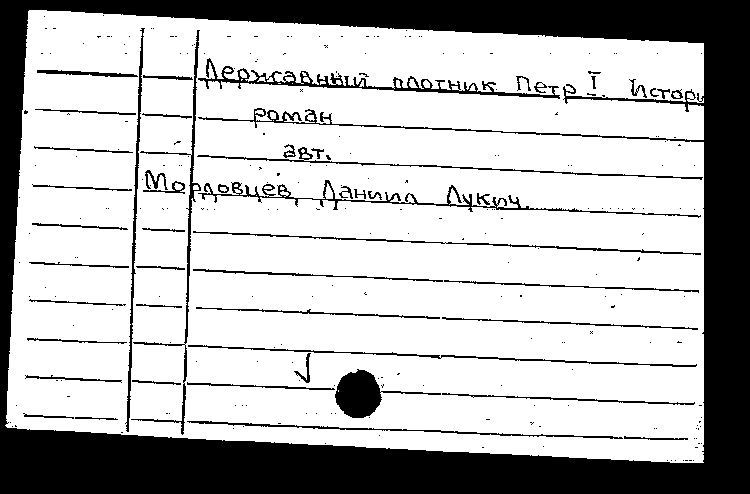 Державный плотник Петр I. Истори
роман
авт.
Мордовцев, Даниил Лукич.